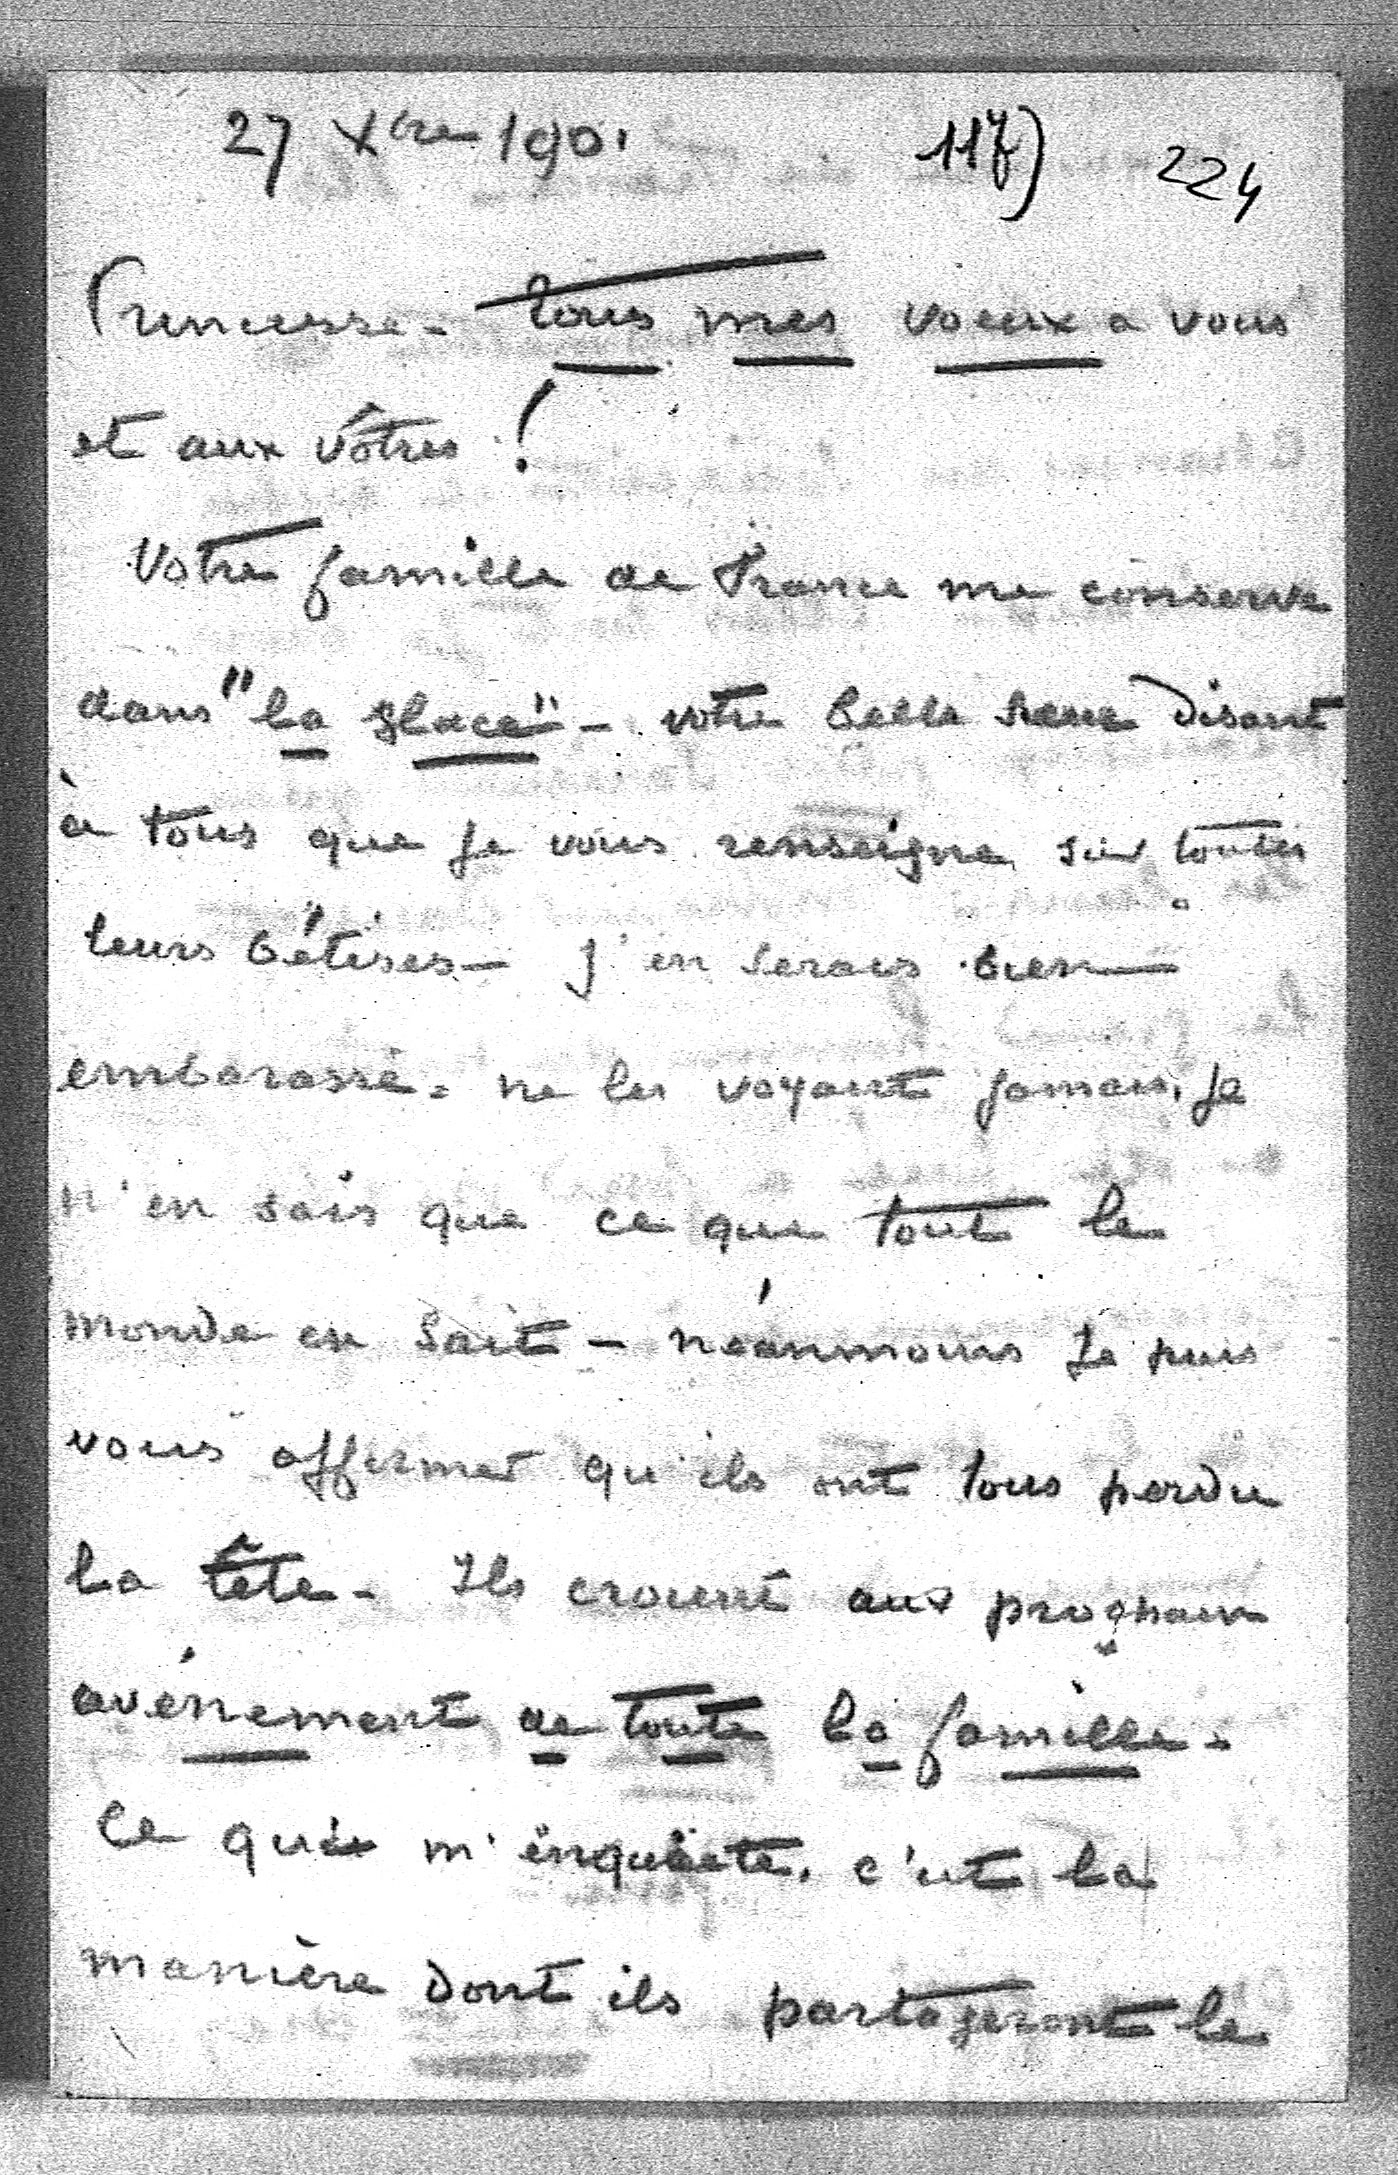 27 Xbre 1901 117) 224
Princesse - tous mes voeux a vous
et aux vôtres !
Votre famille de France me conserve
dans "la glace" - votre belle soeur disant
à tous que je vous renseigne sur toutes
leurs bétises - J'en serais bien
embarassé - ne les voyant jamais, je
n'en sais que ce que tout le
monde en sait - néanmoins je puis
vous affirmer qu'ils ont tous perdu
la tête - Ils croient aux prochain
avénement de toute la famille -
Ce qui m'inquiète, c'est la
manière dont ils partageront le